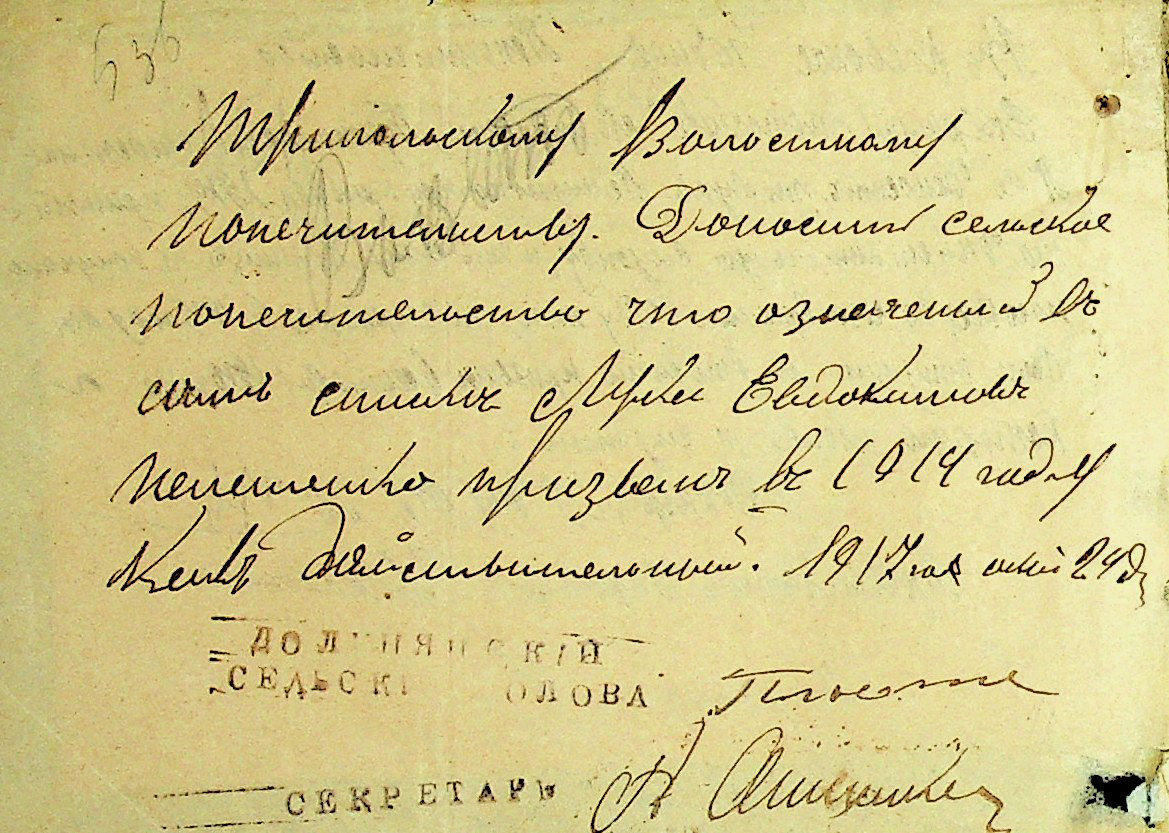 536
Трипольскому Волостному
попечительству. Доносит сельское
попечительство что означеный въ
симъ списке Лука Евдокимовъ
призванъ въ 1914 году
какъ действительный. 1917 года мая 24 д
ДОЛ НЯНСКІЙ
СЕЛЬСКІ ОЛОВА
СЕКРЕТАРЬ